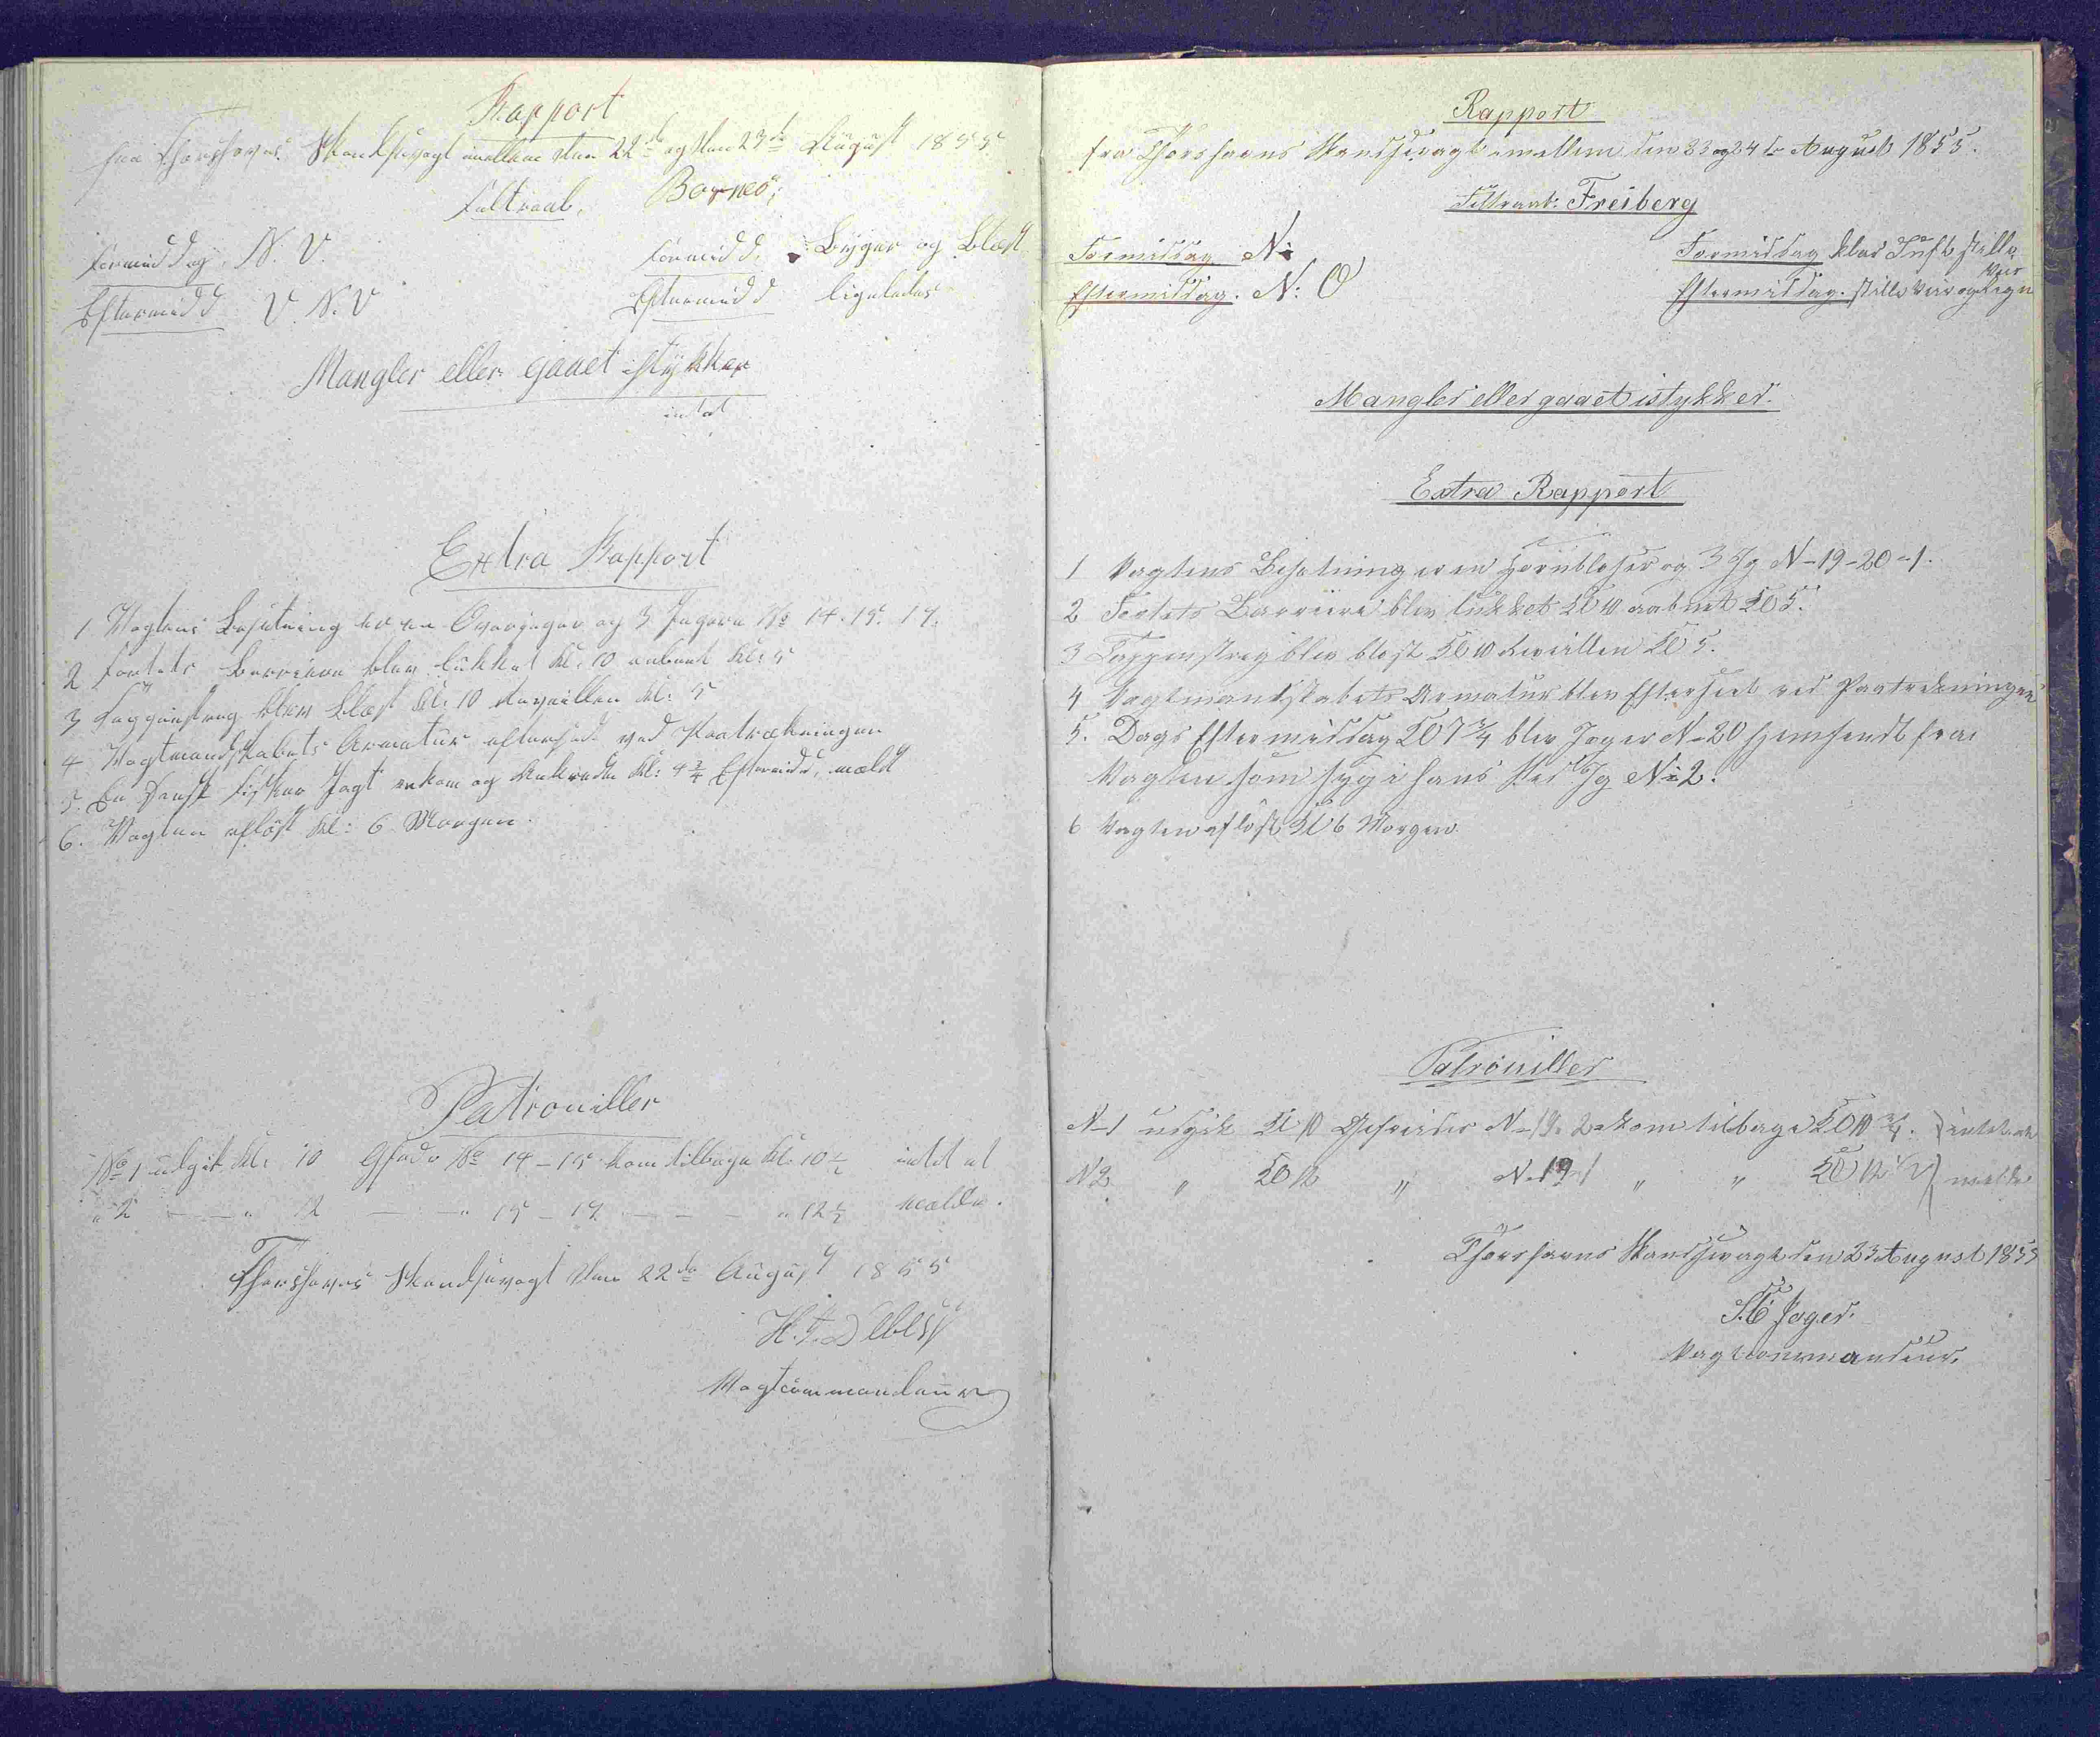 Rapport
fra Thorshavns Skandsevagt imellem den 22de og den 23de August 1855
Feltraab, Borneo,
Formiddag. N. V. Formidd. Byger og Blæst
Eftermidd V. N. V Eftermidd ligeledes
Mangler eller gaaet istykker
intet
Extra Rapport
1 Vagtens Besætning er en Overjæger og 3 Jægere No 14. 15. 17.
2 Fortets Barriere blev lukket Kl: 10 aabnet Kl: 5
3 Tappenstreg blev blæst Kl: 10 Reveillen Kl: 5
4 Vagtmandskabets Armatur efterseet ved Paatrækningen
5. En Dansk Fisker Jagt ankom og Ankrede Kl: 4 3/4 Eftermidd, meldt
6. Vagten afløst Kl: 6 Morgen.
Patrouiller
No 1 udgik Kl: 10 Gfrdr No 14 - 15 kom tilbage Kl: 10 1/2 intet at
" 2 — — " 12 — — " 15 - 17 — — — " 12 1/2 melde.
Thorshavns Skandsevagt den 22de August 1855
H. J. Debess
Vagtcommandeur
Rapport
fra Thorshavns Skandsevagt imellem den 23 og 24de August 1855.
Feltraab: Freiberg
Formiddag N: Formiddag klar Luft stille
Veir
Eftermiddag. N: O Eftermiddag. stille Veir og Regn
Mangler eller gaaet istykker.
Extra Rapport
1 Vagtens Besætning er en Hornblæser og 3 Jg N-19-20-1.
2 Fortets Barriere blev lukket Kl 10 aabnet Kl 5.
3 Tappenstreg blev blæst Kl 10 Reveillen Kl 5.
4 Vagtmandskabets Armatur blev Efterseet ved Paatrækningen
5. Dags Eftermiddag Kl 7 3/4 blev Jæger N-20 hjemsendt fra
Vagten som syg i hans Sted Jg N: 2.
6 Vagten afløst Kl 6 Morgen.
Patrouiller
N-1 udgik Kl 10 Gefreider N-19-2 kom tilbage Kl 10 3/4. intet at
N 2 " Kl 12 " N-19-1 " " Kl 12 1/2 melde
Thorshavns Skandsevagt den 23 August 1855
Jæger.
Vagtcommandeur.